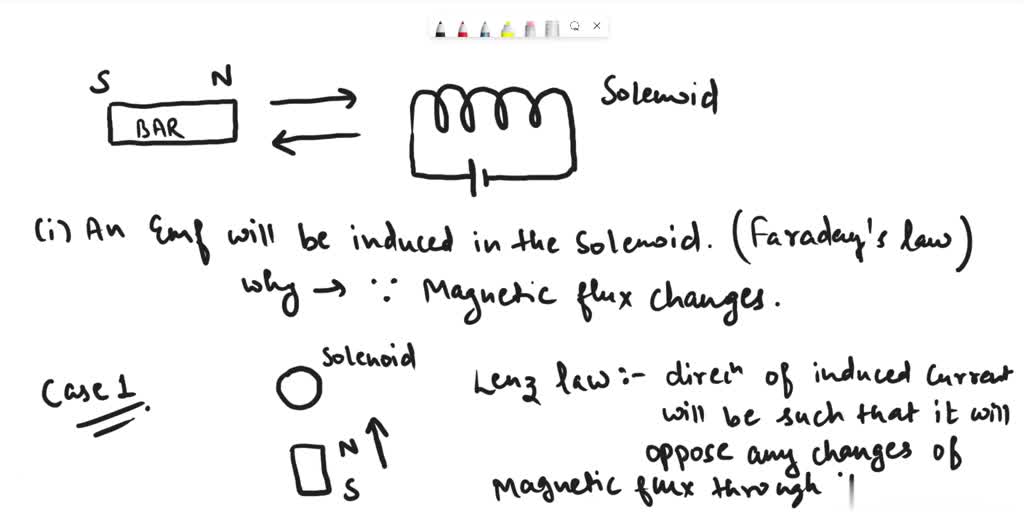 S N
BAR
Solenoid
(i) An Emf will be induced in the Solenoid. (Faraday's law)
why → ∵ Magnetic flux changes.
Solenoid
Case 1
N
S
Lenz law :- direcⁿ of induced current
will be such that it will
oppose any changes of
Magnetic flux through